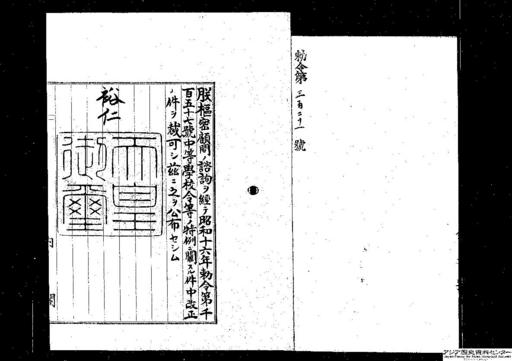 勅令第三百二十一號
朕樞密顧問ノ諮詢ヲ經テ昭和十六年勅令第千
百五十七號中等學校令等ノ特例ニ關スル件中改正
ノ件ヲ裁可シ茲ニ之ヲ公布セシム
裕仁
天皇
御璽
内閣
アジア歴史資料センター